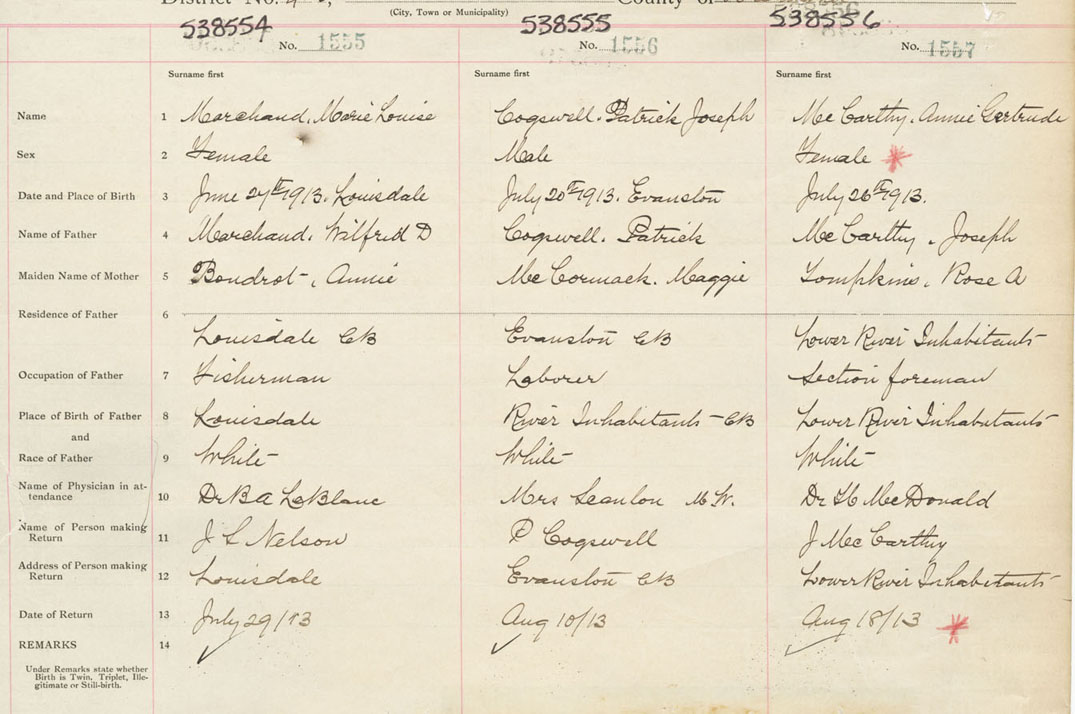 District No. County of
(City, Town or Municipality)
538554 538555 538556
No. 1555 No. 1556 No. 1557
Surname first Surname first Surname first
Name 1 Marchand, Marie Louise Cogswell. Patrick Joseph McCarthy. Annie Gertrude
Sex 2 Female Male Female
Date and Place of Birth 3 June 27th 1913. Louisdale July 20th 1913. Evanston July 26th 1913.
Name of Father 4 Marchand. Wilfrid D Cogswell. Patrick McCarthy. Joseph
Maiden Name of Mother 5 Boudrot, Annie McCormack. Maggie Tompkins, Rose A
Residence of Father 6
Louisdale CB Evanston CB Lower River Inhabitants
Occupation of Father 7 Fisherman Laborer Section foreman
Place of Birth of Father 8 Louisdale River Inhabitants CB Lower River Inhabitants
and
Race of Father 9 White White White
Name of Physician in at-
tendance 10 Dr B A LeBlanc Mrs Scanlon M.W. Dr H McDonald
Name of Person making
Return 11 J L Nelson P Cogswell J McCarthy
Address of Person making
Return 12 Louisdale Evanston CB Lower River Inhabitants
Date of Return 13 July 29/13 Aug 10/13 Aug 18/13
REMARKS 14
Under Remarks state whether
Birth is Twin, Triplet, Ille-
gitimate or Still-birth.